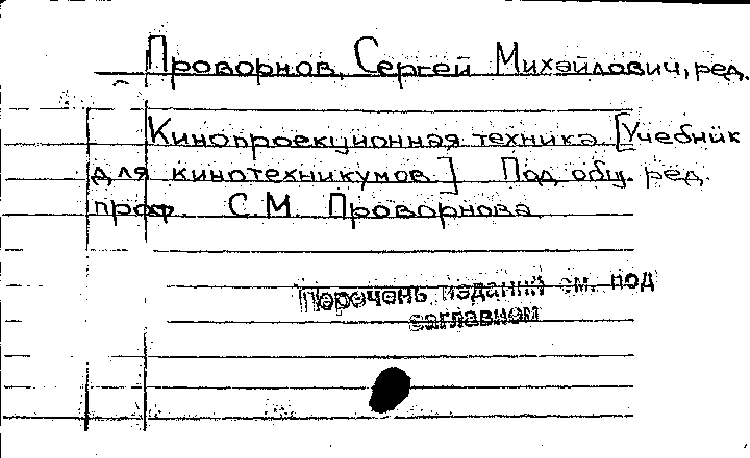 Проворнов, Сергей Михайлович, ред.
Кинопроекционная техника [Учебник
для кинотехникумов.] Под общ. ред.
проф. С.М. Проворнова
Перечень изданий см. под
заглавием